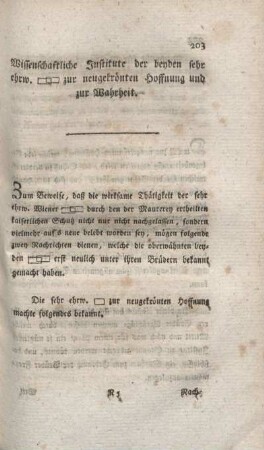 203
Wissenschaftliche Institute der beyden sehr
ehrw. ▭▭ zur neugekrönten Hoffnung und
zur Wahrheit.
Zum Beweise, daß die wirksame Thätigkeit der sehr
ehrw. Wiener ▭▭ durch den der Maurerey ertheilten
kaiserlichen Schutz nicht nur nicht nachgelassen, sondern
vielmehr auf's neue belebt worden sey, mögen folgende
zwey Nachrichten dienen, welche die überwähnten bey-
den ▭▭ erst neulich unter ihren Brüdern bekannt
gemacht haben.
Die sehr ehrw. ▭ zur neugekrönten Hoffnung
machte folgendes bekannt.
Nach-